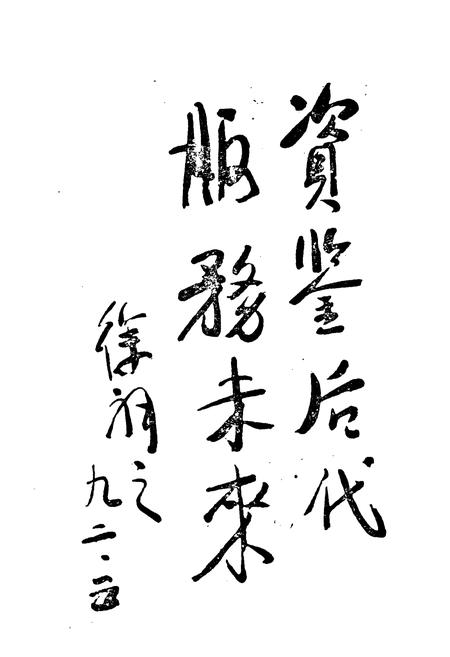 資鉴后代
服務未來
徐之
九二·五